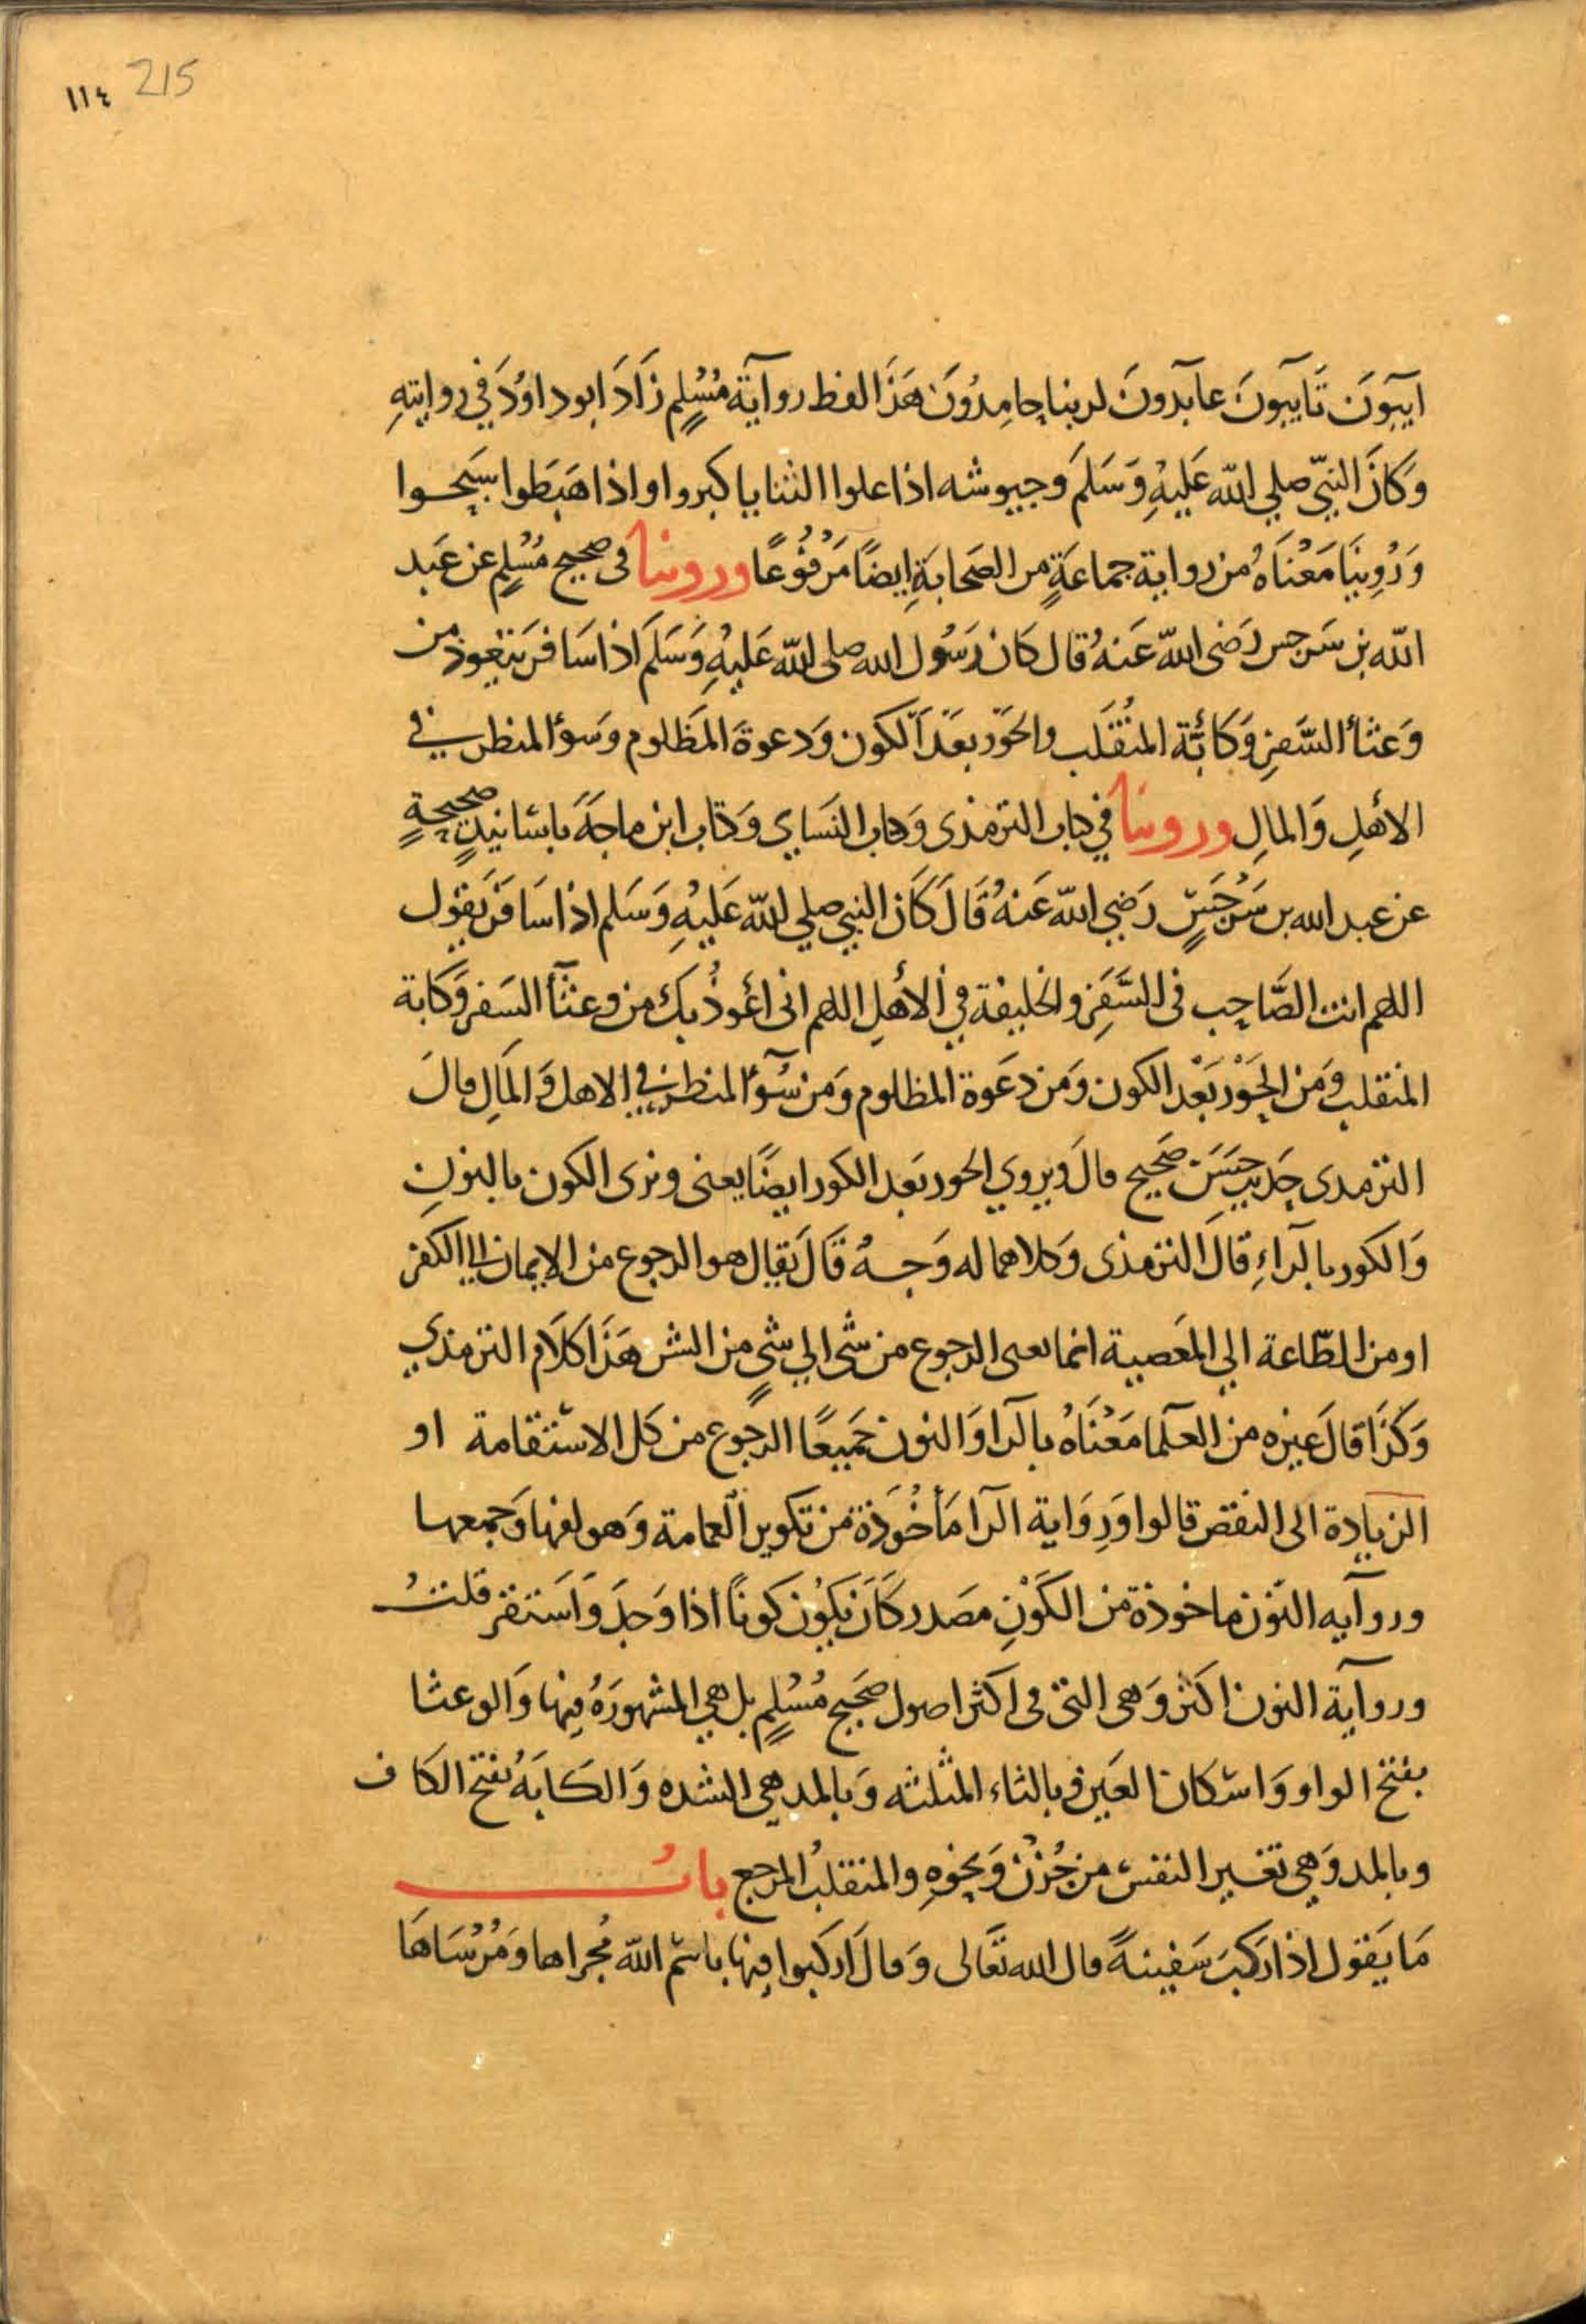 ١١٤ 215
آيبونَ تَايبونَ عابدونَ لربنا حامِدُونَ هَذَا لفظ رواية مُسْلِم زَادَ ابو داوُدَ في روايتهِ
وَكانَ النبيّ صلي الله عَليْهِ وَسَلمَ وجيوشه اذا علوا الثنايا كبروا واذا هَبَطوا سَبحوا
وَرُوِينَا مَعْنَاهُ من رواية جماعَةٍ من الصَحابَةِ ايضًا مَرْفُوعًا وروينا في صحيح مُسْلِم عن عَبد
الله بن سَرجس رَضى الله عَنهُ قال كان رَسُول الله صلى الله عَليْهِ وَسَلمَ اذا سَافر يتعوذ من
وَعثاْ السَّفرِ وَكابَة المنْقَلب والحَوْر بعَدَ الكون وَدعوة المَظلوم وَسوْ المنظر في
الأهلِ وَالمالِ وروينا في كتاب الترمذى وَكتاب النَساي وَكتاب ابن ماجَةَ باسَانيدٍ صحيحةٍ
عن عبد الله بن سَرْجَسٍ رَضِي الله عَنهُ قَالَ كَان النبي صلي الله عَليْهِ وَسَلم اذا سَافرَ يَقول
اللهم انت الصَّاحِب في السَّفَرِ والخليفة في الأهلِ اللهم انى اعُوذُ بك من وعثآْ السَفر وَكابة
المنقلب وَمن الحَوْر بَعْد الكون وَمن دعَوة المظلوم وَمن سُوْ المنظر في الاهل وَالمَالِ قالَ
الترمدى حَديث حسَن صحيح قالَ ويروي الحور بَعد الكور ايضًا يعنى ويروى الكون بالنونِ
وَالكور بالراءِ قالَ الترمذى وَكلاهما له وَجهٌ قَالَ يُقال هو الرجوع من الايمان الي الكفر
او من الطّاعة الي المَعصية انما يعنى الرجوع من شى الي شىٍ من الشر هَذَا كلَام الترمذي
وَكذَا قالَ غيره من العلما مَعْنَاهُ بالراوَ النون جَميعًا الرجوع من كل الاستقامة او
الزيادة الى النقص قالوا وَرِوَاية الرا مَأخُوَذة من تكوير العمامة وَهو لفها وَجمعها
ورواَيه النوْن ماخوذة من الكَوْنِ مصَدر كَانَ يكوُن كونًا اذا وَجدَ وَاستقر قلت
ورواية النون اكثر وَهى التى في اكثر اصول صَحيح مُسْلِم بل هي المشهورَةُ فيها وَالوعثا
بفتح الواو وَاسكان العَين وبالثاء المثلثه وَبالمد هي الشده وَالكَابَةُ بفتح الكاف
وبالمد وَهي تغير النفس من حُزْن وَنحوهِ والمنقلبُ المرجع بابُ
مَا يَقول اذا ركبَ سَفينةً قال الله تعَالى وَقالَ اركبوا فيها باسم الله مُجراها وَمُرْسَاهَا